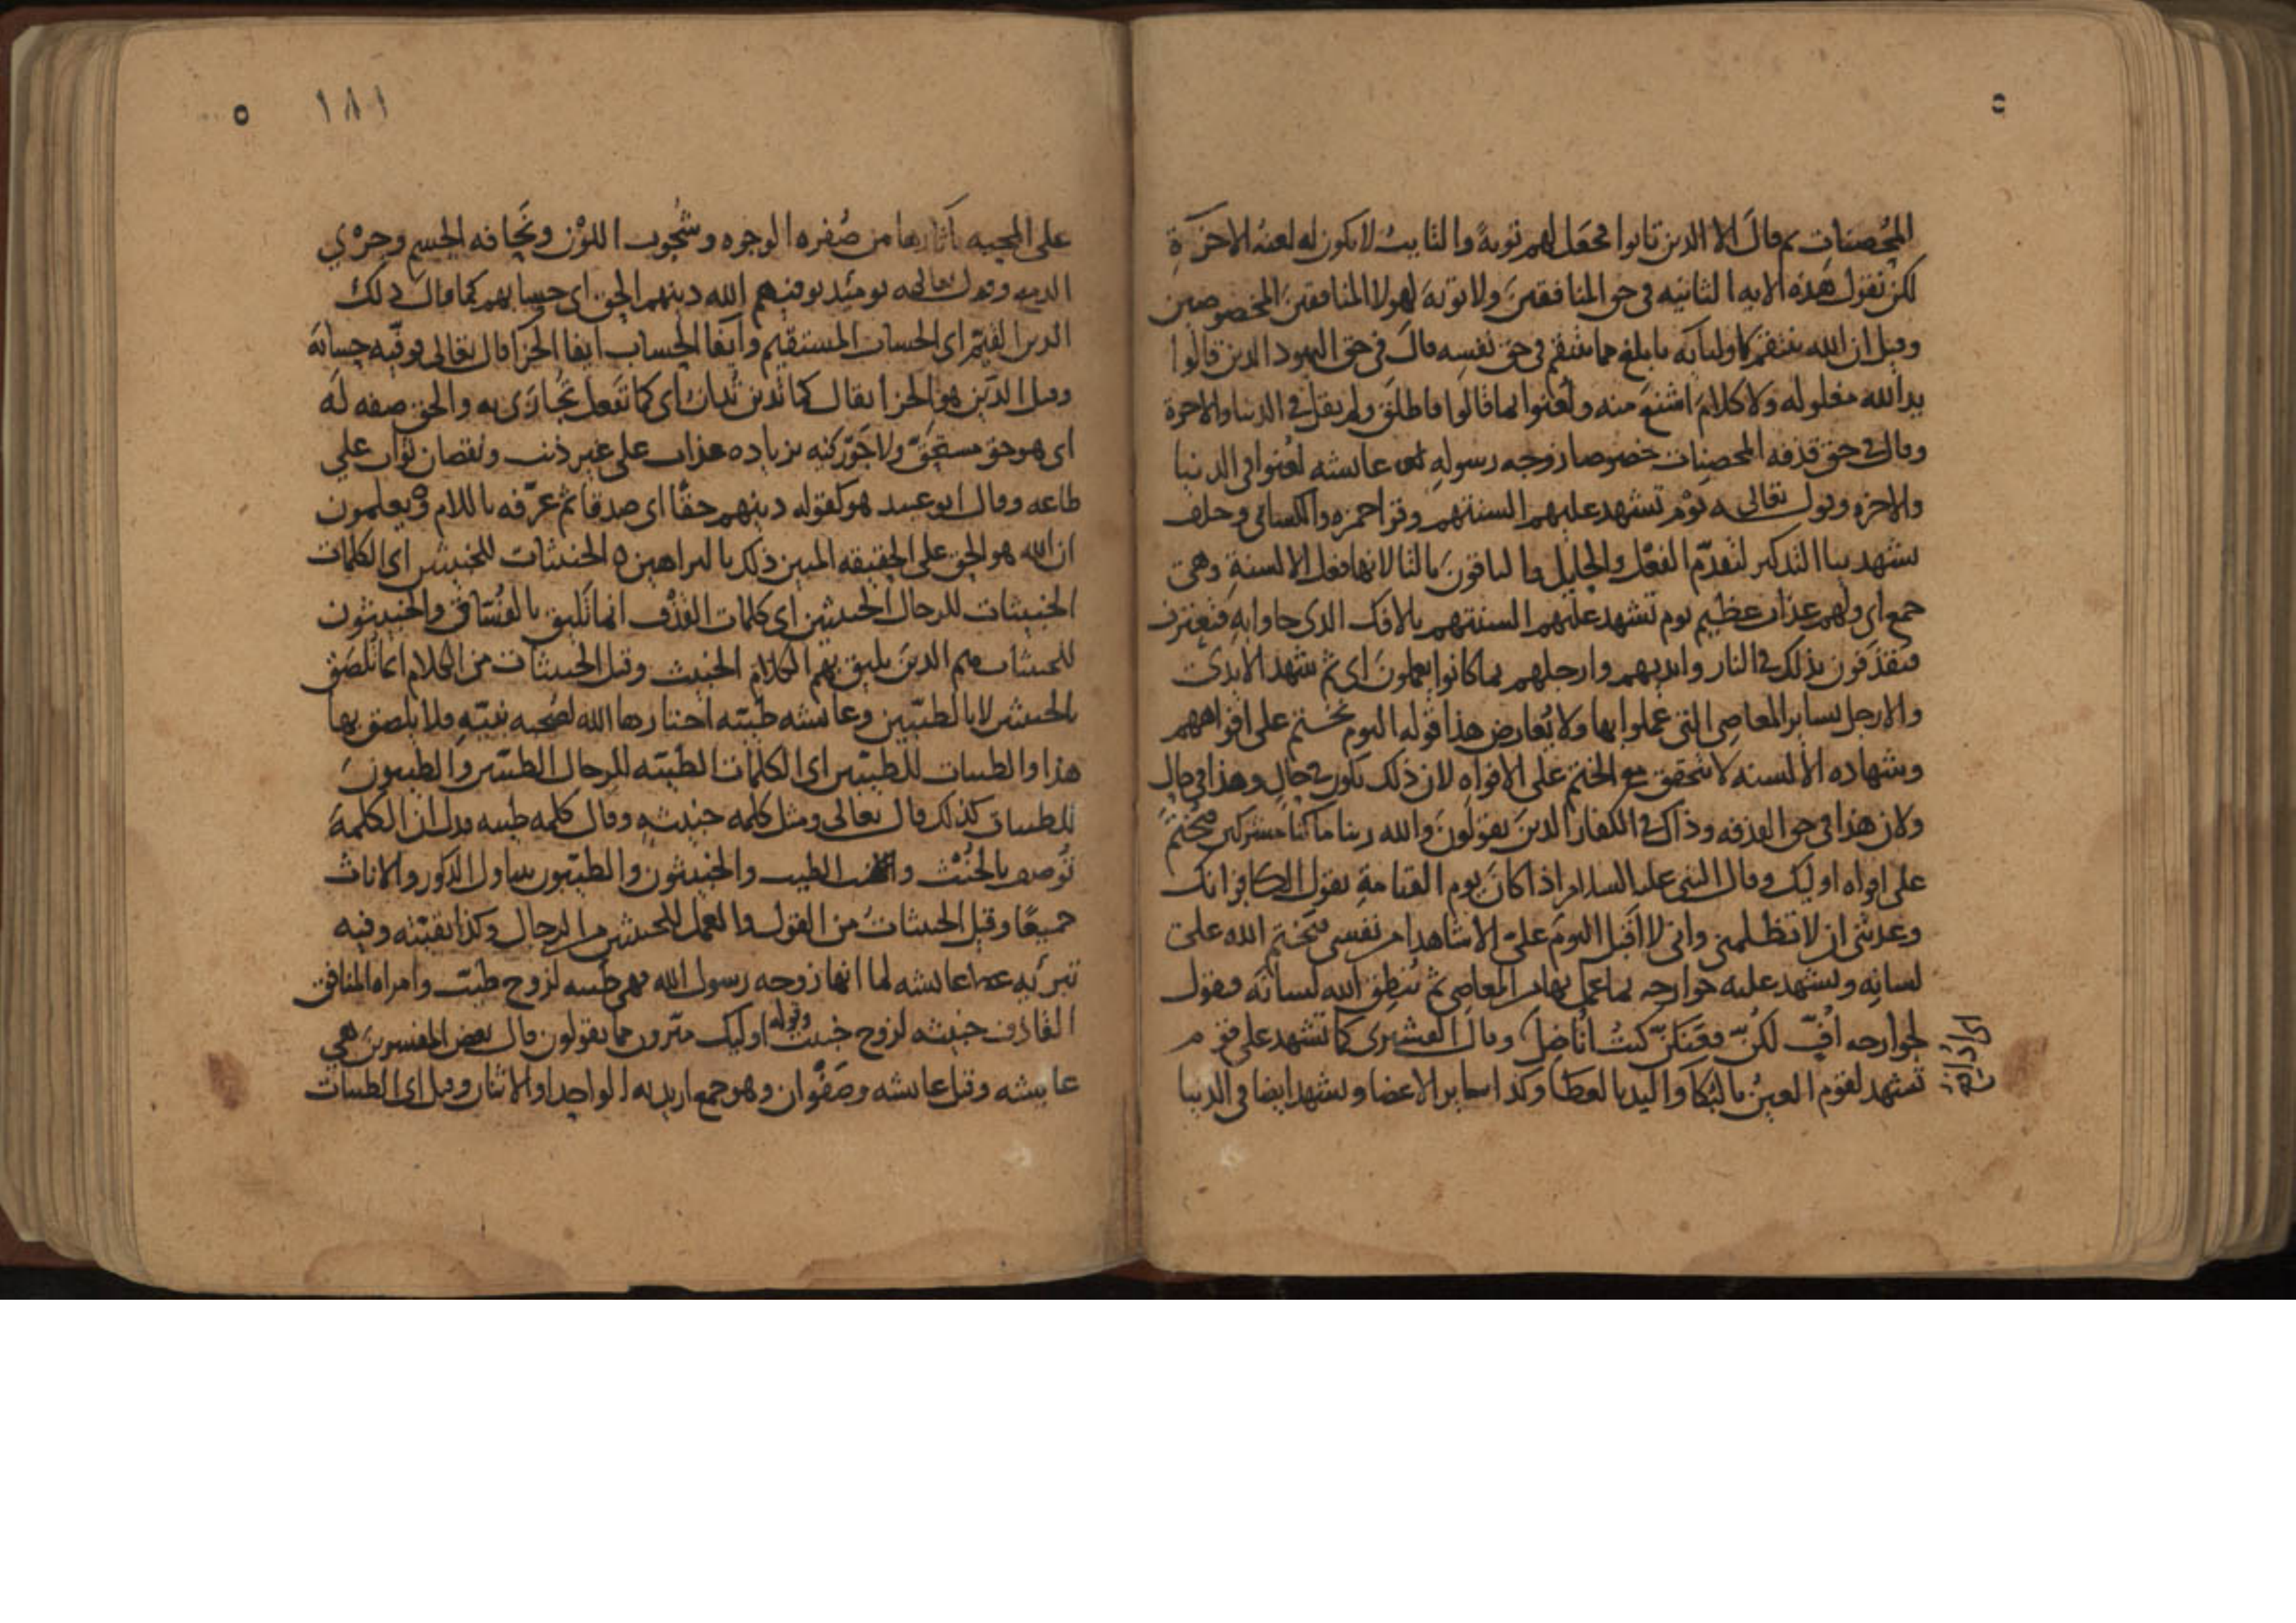 المحصنات ثم قال الا الذين تابوا فجعل لهم توبة والتايب لا يكون له لعنه الاخرة
لكن نقول هذه الايه الثانيه في حق المنافقين ولا توبة لهولا المنافقين المخصوصين
وقيل ان الله ينتقم لاوليائه بابلغ مما ينتقم في حق نفسه قال في حق اليهود الذين قالوا
يد الله مغلوله ولا كلام اشنع منه ولعنوا بما قالوا فاطلق ولم يقل في الدنيا والاخرة
وقال في حق قذفه المحصنات خصوصا زوجه رسوله عايشه لعنوا في الدنيا
والاخره وقوله تعالى يوم تشهد عليهم السنتهم وقرا حمزه والكسائي وخلف
يشهد بيا التذكير لتقدم الفعل والحايل والباقون بالتا لانها فعل الالسنة وهي
جمع اي ولهم عذاب عظيم يوم تشهد عليهم السنتهم بالافك الذي جاوا به فتعترف
فيقذفون بذلك في النار وايديهم وارجلهم بما كانوا يعملون اي ثم تشهد الايدي
والارجل بساير المعاصي التي عملوا بها ولا يعارض هذا قوله اليوم نختم على افواههم
وشهاده الالسنه لا تتحقق مع الختم على الافواه لان ذلك يكون في حال وهذا في حال
ولان هذا في حق القذفه وذاك في الكفار الذين يقولون والله ربنا ما كنا مشركين فيختم
على افواه اوليك وقال النبي عليه السلام اذا كان يوم القيامة يقول الكافر انك
وعدتني ان لا تظلمني واني لا اقبل اليوم علي الا شاهدا من نفسي فيختم الله على
لسانه ويشهد عليه جوارحه بما عمل بها من المعاصي ثم ينطق الله لسانه فيقول
لجوارحه اف لكن فعنكن كنت اناضل وقال القشيري كما تشهد على قوم
تشهد لقوم العين بالبكا واليد بالعطا وكذا ساير الاعضا ويشهد ايضا في الدنيا
٥ ١٨١
على المحبه باثارها من صفره الوجوه وشحوب اللون ونحافه الجسم وجري
الدمع وقوله تعالى يومئذ يوفيهم الله دينهم الحق اي حسابهم كما قال ذلك
الدين القيم اي الحساب المستقيم وايفا الحساب ايفا الجزا قال تعالى فوفيه حسابه
وقيل الدين هو الجزا يقال كما تدين تدان اي كما تفعل تجازى به والحق صفه له
اي هو حق مستحق ولا جور فيه بزياده عذاب على غير ذنب ونقصان ثواب على
طاعه وقال ابو عبيد هو كقوله دينهم حقا اي صدقا ثم عرفه باللام ويعلمون
ان الله هو الحق على الحقيقه المبين ذلك بالبراهين الخبيثات للخبيثين اي الكلمات
الخبيثات للرجال الخبيثين اي كلمات القذف انما تليق بالفساق والخبيثون
للخبيثات هم الذين يليق بهم الكلام الخبيث وقيل الخبيثات من الكلام انما تلصق
بالخبيثين لا بالطيبين وعايشه طيبه اختارها الله لصحبه نبيه فلا يلصق بها
هذا والطيبات للطيبين اي الكلمات الطيبه للرجال الطيبين والطيبون
للطيبات كذلك قال تعالى ومثل كلمه خبيثه وقال كلمه طيبه فدل ان الكلمة
توصف بالخبث والطيب والخبيثون والطيبون يتناول الذكور والاناث
جميعا وقيل الخبيثات من القول والعمل للخبيثين من الرجال وكذا بقيته وفيه
تبريه عايشه لما انها زوجه رسول الله فهي طيبه لزوج طيب وامراه المنافق
القاذف خبيثه لزوج خبيث وقوله اوليك مبرون مما يقولون قال بعض المفسرين هي
عايشه وقيل عايشه وصفوان وهو جمع اريد به الواحد او الاثنان وقيل اي الطيبات